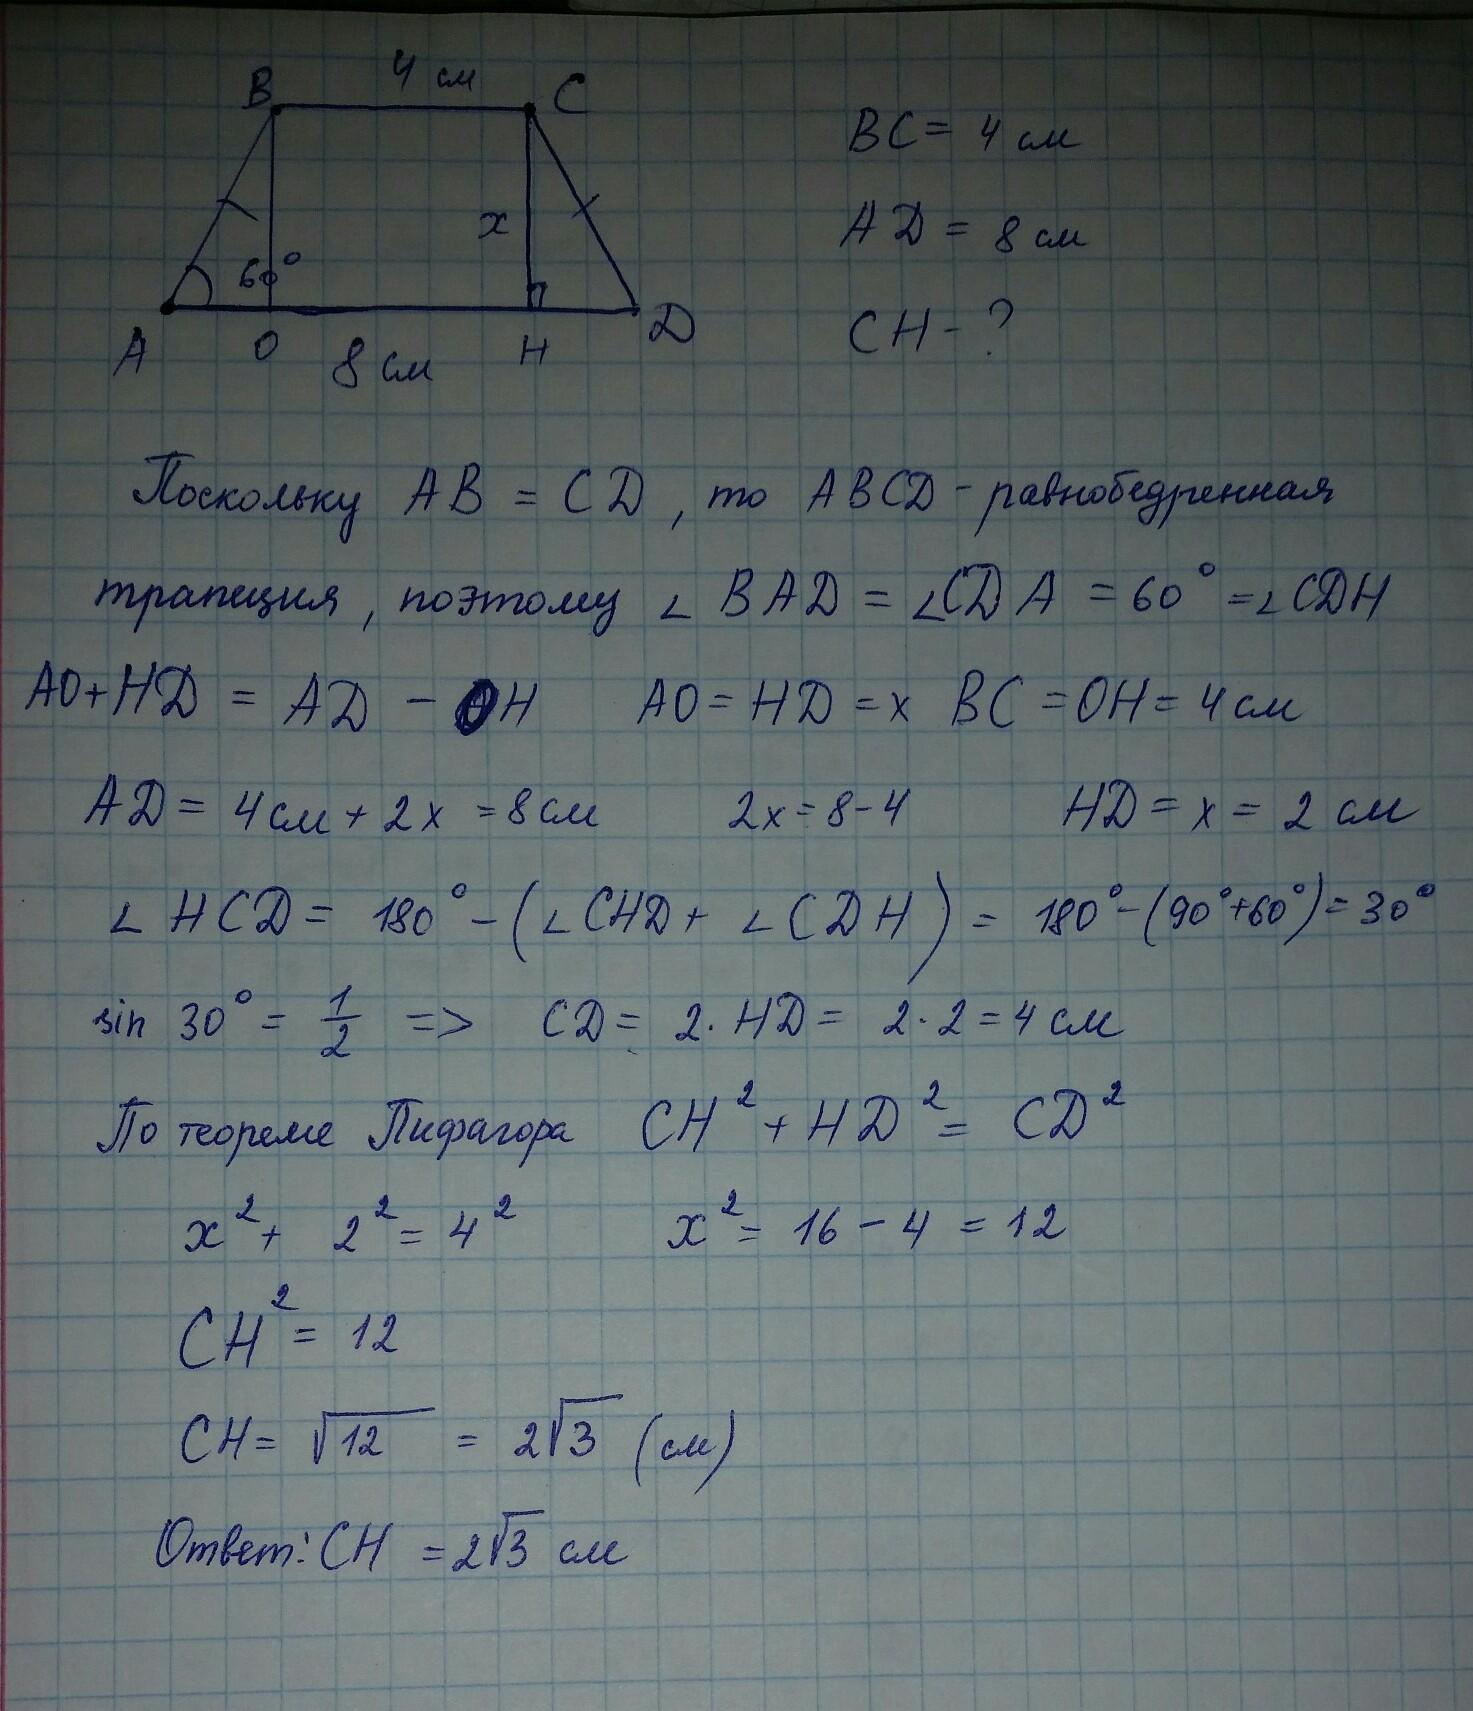 4 см
B C
x
60°
A O H D
8 см
BC = 4 см
AD = 8 см
CH - ?
Поскольку AB = CD, то ABCD - равнобедренная
трапеция, поэтому ∠ BAD = ∠CDA = 60° = ∠CDH
AO+HD = AD - OH AO = HD = x BC = OH = 4 см
AD = 4 см + 2x = 8 см 2x = 8 - 4 HD = x = 2 см
∠ HCD = 180° - (∠CHD + ∠CDH) = 180° - (90° + 60°) = 30°
sin 30° = 1/2 => CD = 2 · HD = 2 · 2 = 4 см
По теореме Пифагора CH² + HD² = CD²
x² + 2² = 4² x² = 16 - 4 = 12
CH² = 12
CH = √12 = 2√3 (см)
Ответ: CH = 2√3 см